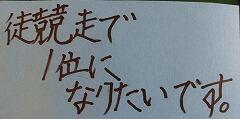 徒競走で
1位に
なりたいです。